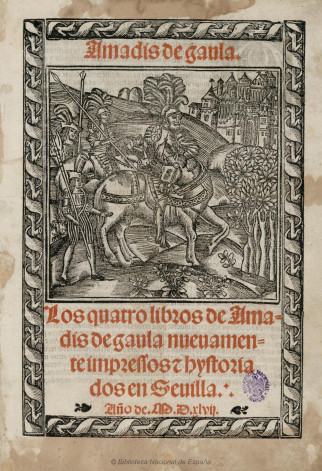 Amadis de gaula.
Los quatro libros de Ama-
dis de gaula nueuamen-
te impressos ⁊ hystoria
dos en Seuilla.·.
Año de. M. D. xlvij.
© Biblioteca Nacional de España